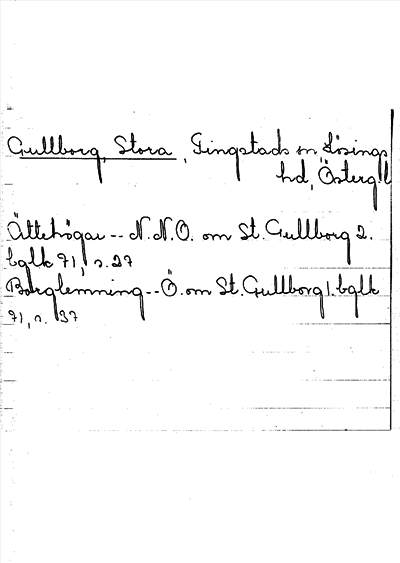 Gullborg, Stora, Gingstads sn, Lösings
hd, Östergl
Ättehögar -- N.N.O. om St. Gullborg 2.
bglk 71, s. 27
Borglemning -- Ö. om St. Gullborg 1. bglk
71, s. 37